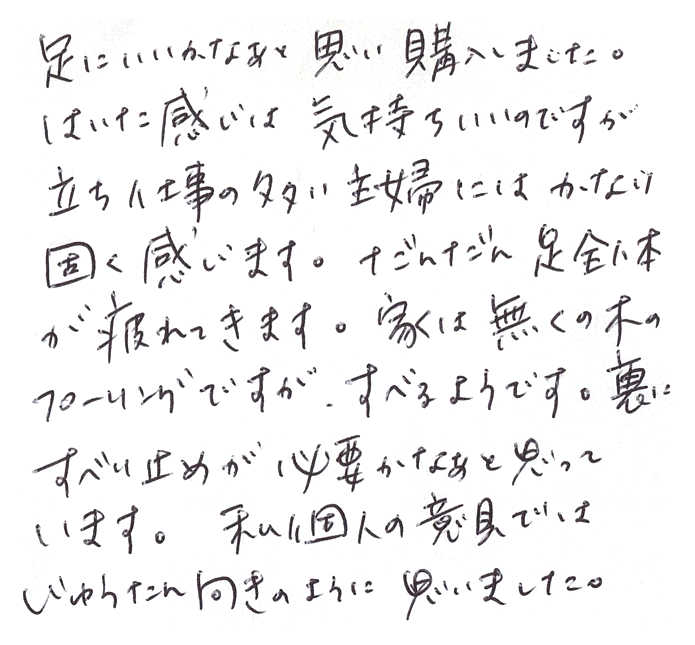 足にいいかなあと思い購入しました。
はいた感じは気持ちいいのですが
立ち仕事の多い主婦にはかなり
固く感じます。だんだん足全体
が疲れてきます。家は無くの木の
フローリングですが、すべるようです。裏に
すべり止めが必要かなあと思って
います。 私個人の意見では
じゅうたん向きのように思いました。